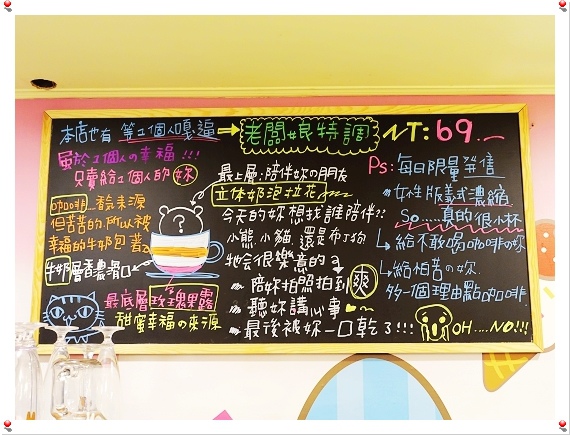 本店也有 等1個人嘎逼 → 老闆娘特調 NT:69.
屬於1個人の幸福!!!
只賣給1個人的妳
咖啡...香氣來源
但苦苦的,所以被
幸福的牛奶包著
牛奶層香濃濕口
最底層玫瑰果露
甜蜜幸福の來源
最上層:陪伴妳の朋友
立体奶泡拉花
今天的妳想找誰陪伴??
小熊.小貓.還是布丁狗
牠會很樂意的
陪妳拍照拍到爽
聽妳講心事
最後被妳一口乾了!!!
Ps:每日限量
女性版義式濃縮
So.....真的很小杯
給不敢喝咖啡の妳
給怕苦の妳.
多一個理由點咖啡
OH....NO!!!